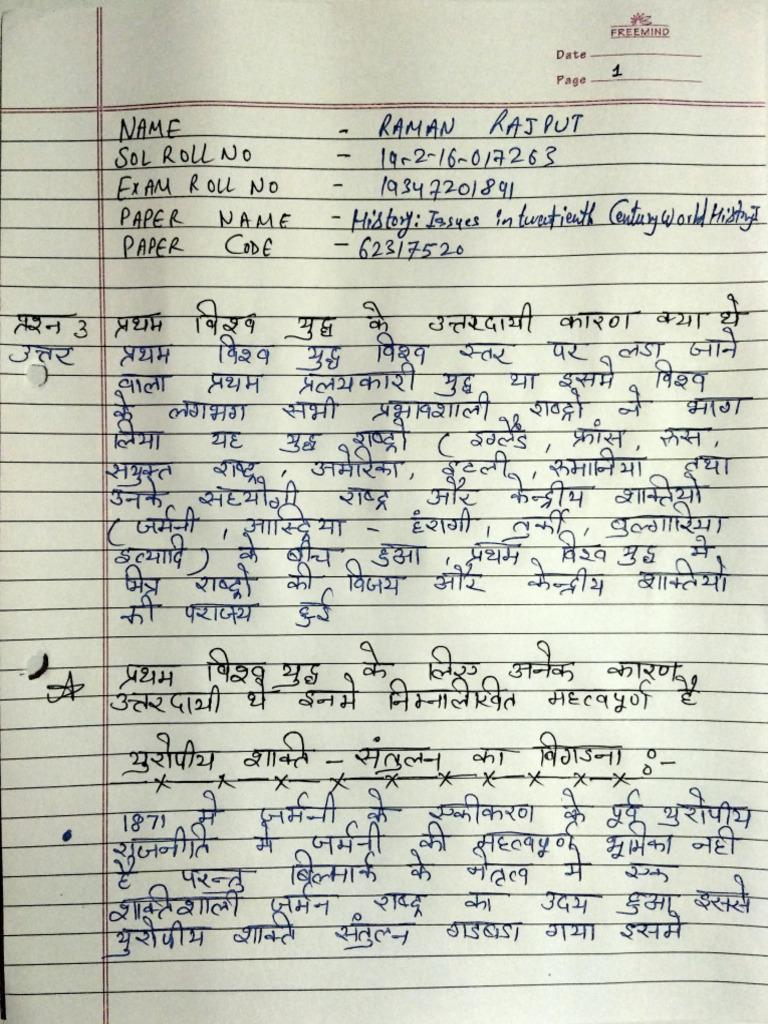 FREEMIND
Date
Page 1
NAME - RAMAN RAJPUT
SOL ROLL NO - 19-2-16-017263
EXAM ROLL NO - 19347201891
PAPER NAME - History: Issues in twentieth Century World History
PAPER CODE - 62317520
प्रश्न 3 प्रथम विश्व युद्ध के उत्तरदायी कारण क्या थे
उत्तर प्रथम विश्व युद्ध विश्व स्तर पर लडा जाने
वाला प्रथम प्रलयकारी युद्ध था इसमे विश्व
के लगभग सभी प्रभावशाली राष्ट्रो ने भाग
लिया यह युद्ध राष्ट्रो ( इंग्लैंड, फ्रांस, रूस,
सयुक्त राष्ट्र, अमेरिका, इटली, रूमानिया तथा
उनके सहयोगी राष्ट्र और केन्द्रीय शक्तियो
( जर्मनी, आस्ट्रिया - हंगरी, तुर्की, बुल्गारिया
इत्यादि ) के बीच हुआ, प्रथम विश्व युद्ध मे
मित्र राष्ट्रो की विजय और केन्द्रीय शक्तियो
की पराजय हुई
प्रथम विश्व युद्ध के लिए अनेक कारण
उत्तरदायी थे इनमे निम्नलिखित महत्वपूर्ण है
युरोपीय शक्ति - संतुलन का बिगडना :-
1871 मे जर्मनी के एकीकरण के पूर्व युरोपीय
राजनीति मे जर्मनी की महत्वपूर्ण भूमिका नही
है परन्तु बिस्मार्क के नेतृत्व मे एक
शक्तिशाली जर्मन राष्ट्र का उदय हुआ इससे
युरोपीय शक्ति संतुलन गडबडा गया इसमे